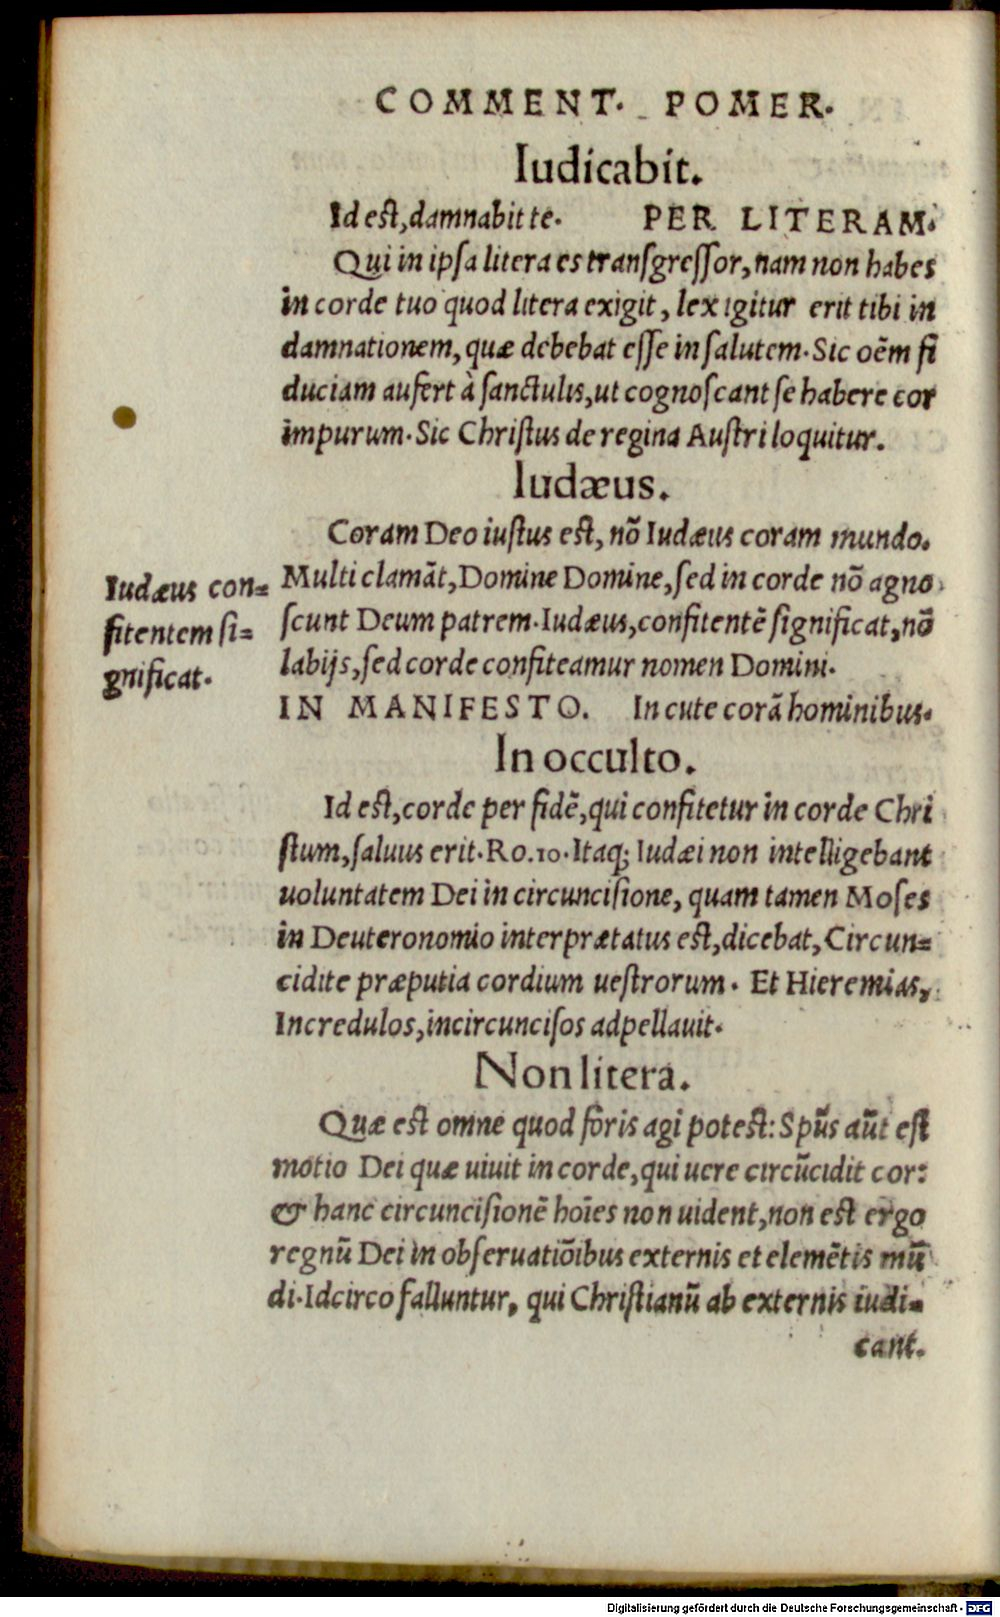 COMMENT. POMER.
Iudicabit.
Id est, damnabit te. PER LITERAM.
Qui in ipsa litera es transgressor, nam non habes
in corde tuo quod litera exigit, lex igitur erit tibi in
damnationem, quæ debebat esse in salutem. Sic oẽm fi
duciam aufert à sanctulis, ut cognoscant se habere cor
impurum. Sic Christus de regina Austri loquitur.
Iudæus.
Coram Deo iustus est, nõ Iudæus coram mundo.
Multi clamãt, Domine Domine, sed in corde nõ agno
scunt Deum patrem. Iudæus, confitentẽ significat, nõ
labijs, sed corde confiteamur nomen Domini.
Iudæus con=
fitentem si=
gnificat.
IN MANIFESTO. In cute corã hominibus.
In occulto.
Id est, corde per fidẽ, qui confitetur in corde Chri
stum, saluus erit. Ro.10. Itaq; Iudæi non intelligebant
uoluntatem Dei in circuncisione, quam tamen Moses
in Deuteronomio interprætatus est, dicebat, Circun=
cidite præputia cordium uestrorum. Et Hieremias,
Incredulos, incircuncisos adpellauit.
Non litera.
Quæ est omne quod foris agi potest: Spũs aũt est
motio Dei quæ uiuit in corde, qui uere circũcidit cor:
& hanc circuncisionẽ hoĩes non uident, non est ergo
regnũ Dei in obseruatiõibus externis et elemẽtis mũ
di. Idcirco falluntur, qui Christianũ ab externis iudi=
cant.
Digitalisierung gefördert durch die Deutsche Forschungsgemeinschaft - DFG